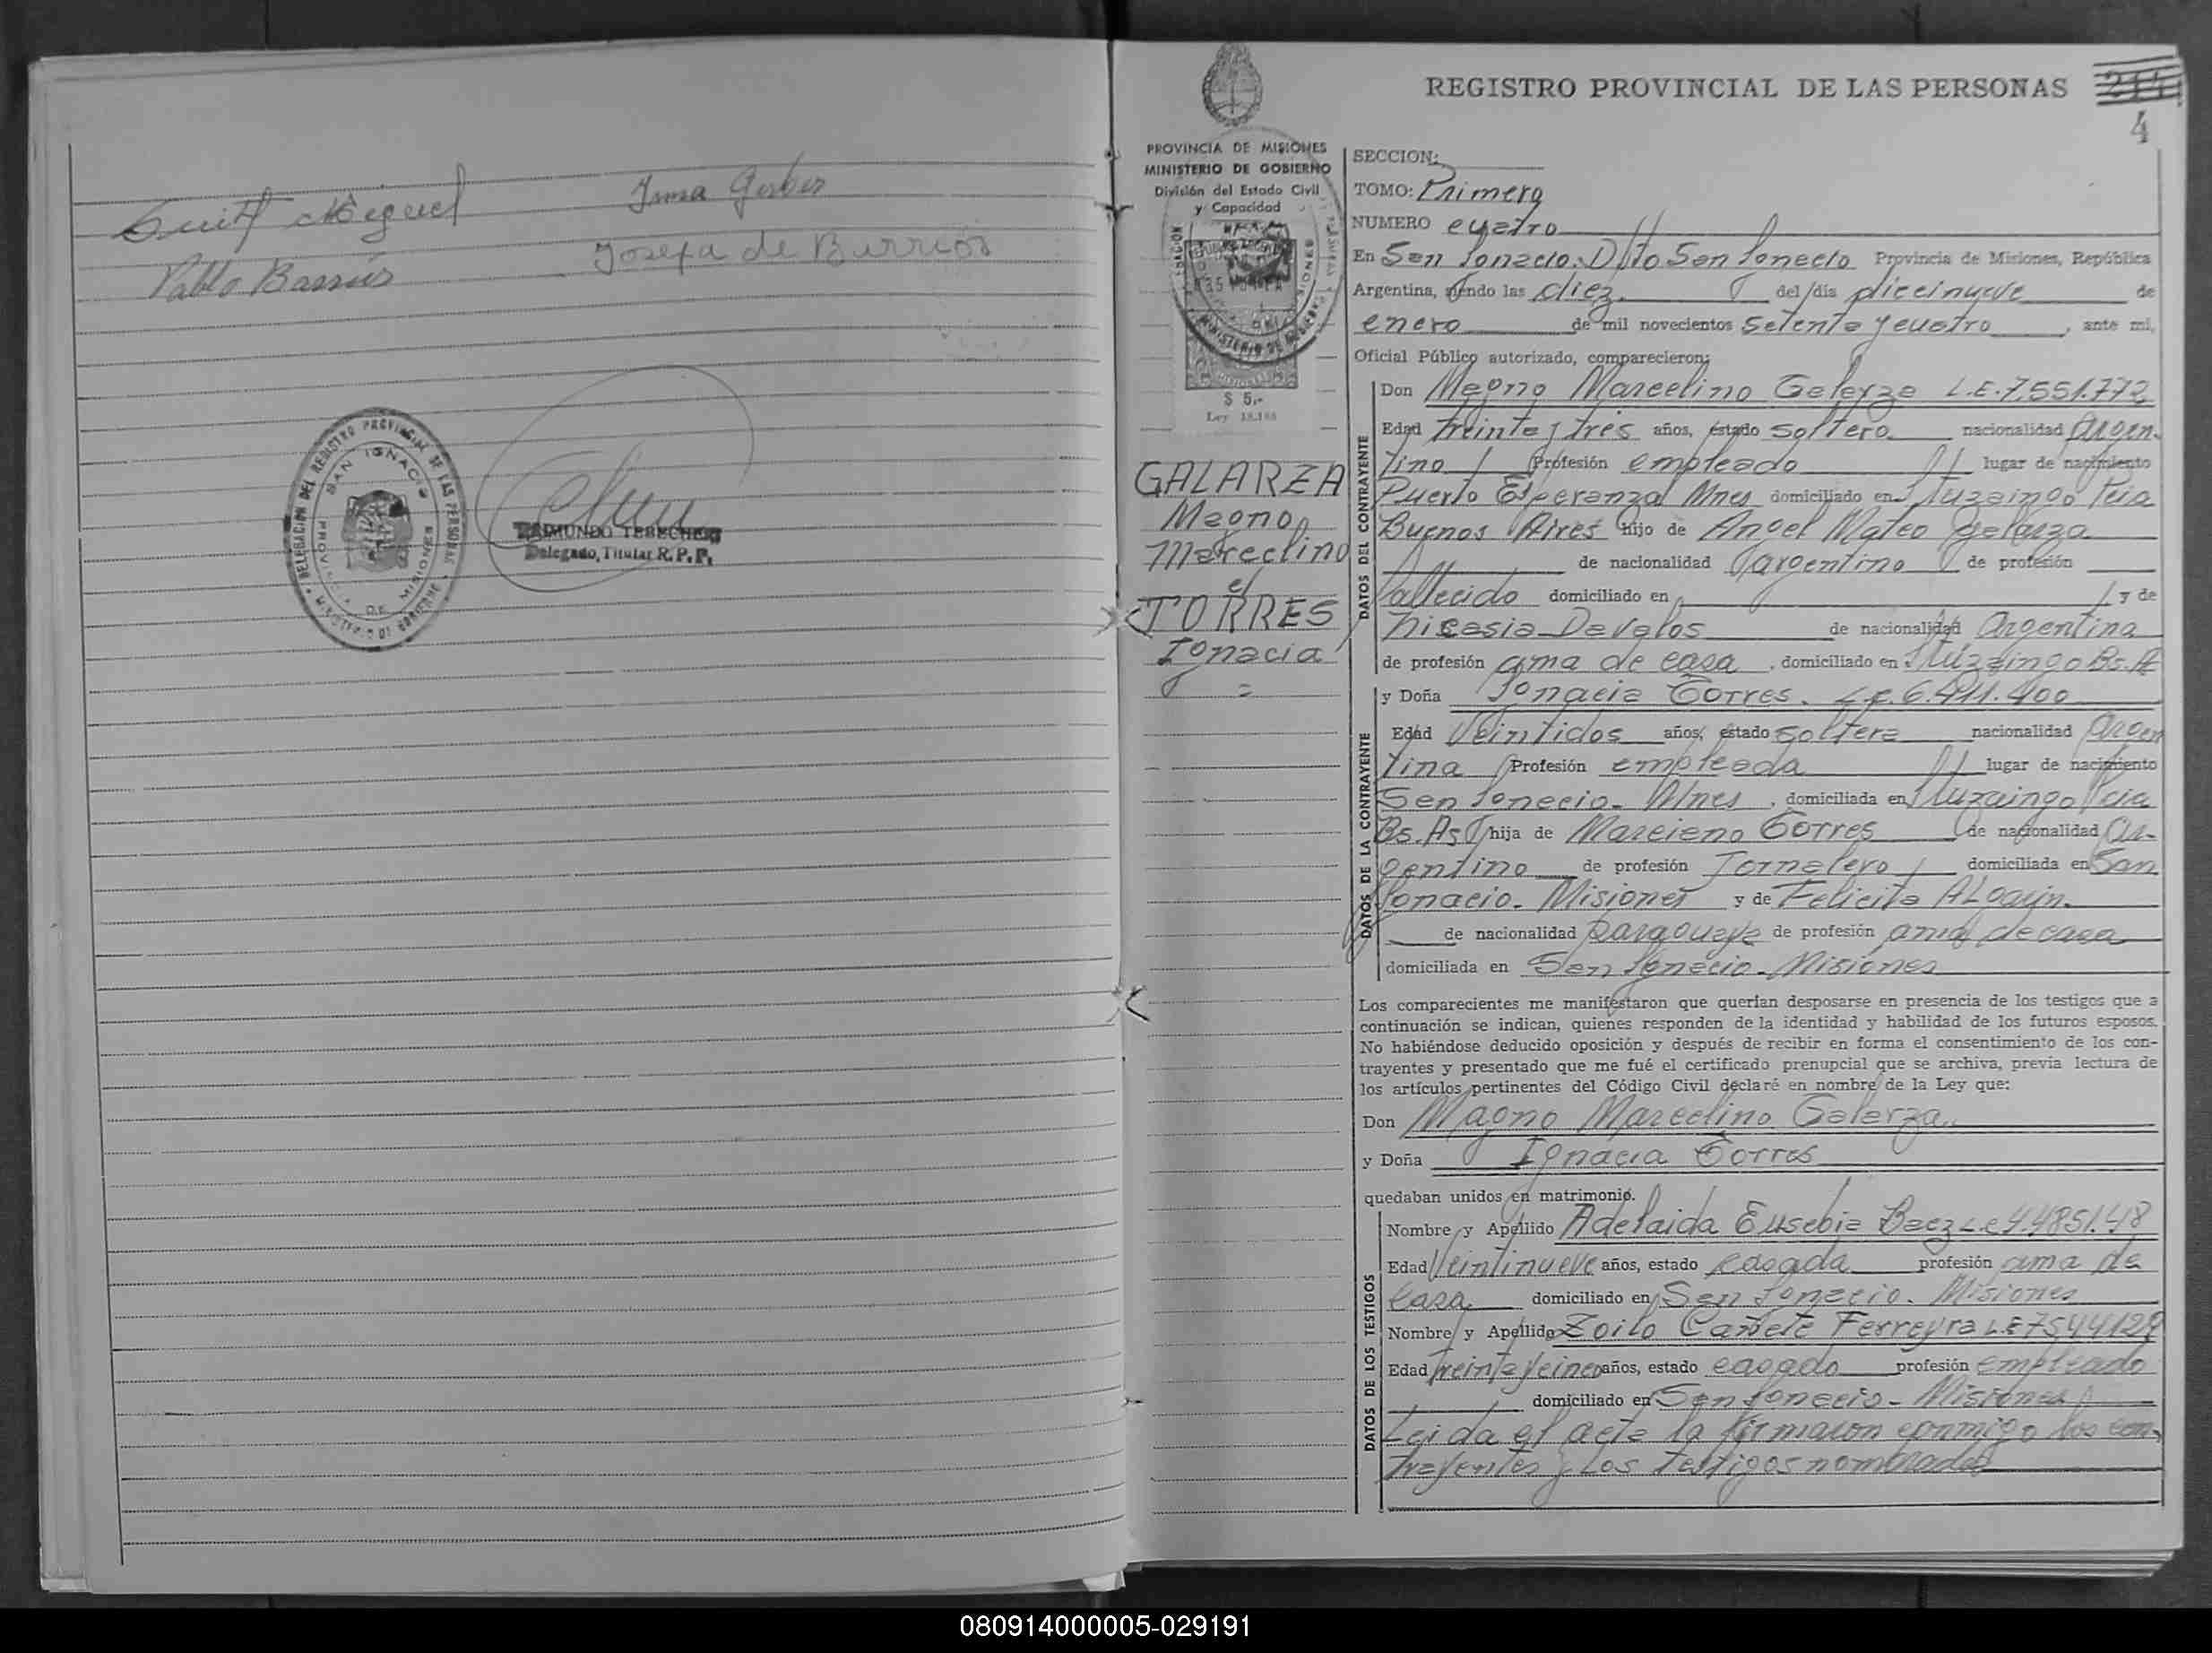 Miguel
Irma Gerber
Pablo Barrios
Josefa de Barrios
DELEGACION DEL REGISTRO PROVINCIAL DE LAS PERSONAS
SAN IGNACIO
PROVINCIA DE MISIONES
MINISTERIO DE GOBIERNO
RAIMUNDO TERECHCO
Delegado, Titular R. P. P.
REGISTRO PROVINCIAL DE LAS PERSONAS
4
PROVINCIA DE MISIONES
MINISTERIO DE GOBIERNO
División del Estado Civil
y Capacidad
MINISTERIO DE GOBIERNO
$ 5.-
Ley 18.188
GALARZA
Magno
Marcelino
c/
TORRES
Ignacia
=
SECCION:
TOMO: Primero
NUMERO cuatro
En San Ignacio. Dpto San Ignacio Provincia de Misiones, República
Argentina, siendo las diez del día diecinueve de
enero de mil novecientos setenta y cuatro, ante mi,
Oficial Público autorizado, comparecieron:
DATOS DEL CONTRAYENTE
Don Magno Marcelino Galarza L.E. 7.551.772
Edad treinta y tres años, estado soltero nacionalidad Argen-
tino Profesión empleado lugar de nacimiento
Puerto Esperanza Mnes domiciliado en Ituzaingo Pcia
Buenos Aires hijo de Angel Mateo Galarza
de nacionalidad argentino de profesión
fallecido domiciliado en y de
Nicasia Davalos de nacionalidad Argentina
de profesión ama de casa, domiciliado en Ituzaingo Bs. A
DATOS DE LA CONTRAYENTE
y Doña Ignacia Torres. L.C. 6.411.400
Edad Veintidos años, estado soltera nacionalidad Argen
tina Profesión empleada lugar de nacimiento
San Ignacio. Mnes, domiciliada en Ituzaingo Pcia
Bs. As hija de Marciano Torres de nacionalidad Ar-
gentino de profesión Jornalero domiciliada en San
Ignacio. Misiones y de Felicita ALGAÑ.
de nacionalidad paraguaya de profesión ama de casa
domiciliada en San Ignacio. Misiones
Los comparecientes me manifestaron que querían desposarse en presencia de los testigos que a
continuación se indican, quienes responden de la identidad y habilidad de los futuros esposos.
No habiéndose deducido oposición y después de recibir en forma el consentimiento de los con-
trayentes y presentado que me fué el certificado prenupcial que se archiva, previa lectura de
los artículos pertinentes del Código Civil declaré en nombre de la Ley que:
Don Magno Marcelino Galarza
y Doña Ignacia Torres
quedaban unidos en matrimonio.
DATOS DE LOS TESTIGOS
Nombre y Apellido Adelaida Eusebia Baez L.C 4.4851.48
Edad Veintinueve años, estado casada profesión ama de
casa domiciliado en San Ignacio. Misiones
Nombre y Apellido Zoilo Cañete Ferreyra L.E 7544129
Edad treinta y cinco años, estado casado profesión empleado
domiciliado en San Ignacio - Misiones
Leida el acta la firmaron conmigo los con-
trayentes y los testigos nombrados
080914000005-029191